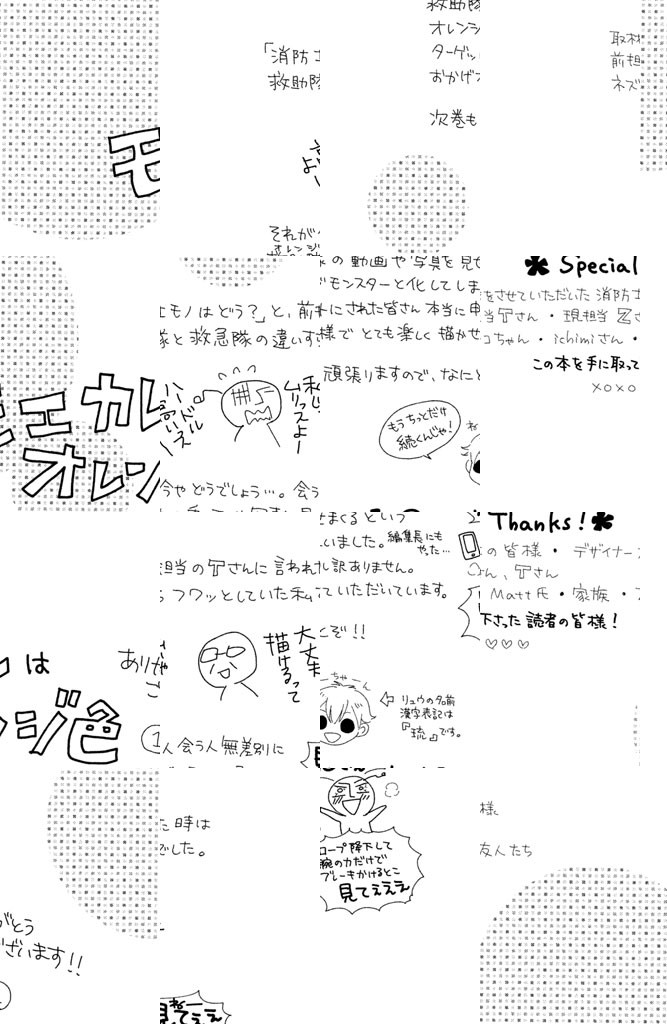 モ
「消防士
救助隊
それが
オレンジ
救助隊
オレンジ
ターゲッ
おかげ
次巻も
取材
前担
ネズ
エカレ
オレン
モノはどう?」と、前
隊と救急隊の違いす
ハードル
高いえー
ムリっスよー
今やどうでしょう…。会う
の動画や写真を見せ
モンスターと化してしま
にされた皆さん本当に申
様でとても楽しく描かせ
頑張りますので、なにと
もうちっとだけ
続くんじゃ!
Special
をさせていただいた消防士
当Tさん・現担当Zさ
コちゃん・ichimiさん・
この本を手に取って
xoxo
は
ンジ色
担当のTさんに言われ
らフワッとしていた私
ありがと
大丈夫
描けるって
1人会う人無差別に
せまくるという
いました。
編集長にも
やった…
し訳ありません。
ていただいています。
ぞ!!
ちゃーん
リュウの名前
漢字表記は
『琉』です。
Thanks!
の皆様・デザイナー
ん、Tさん
Matt氏・家族・
下さった読者の皆様!
♡♡♡
がとう
ございます!!
た時は
でした。
見てええ
ロープ降下して
腕の力だけで
ブレーキかけるとこ
見てぇぇぇ
様
友人たち